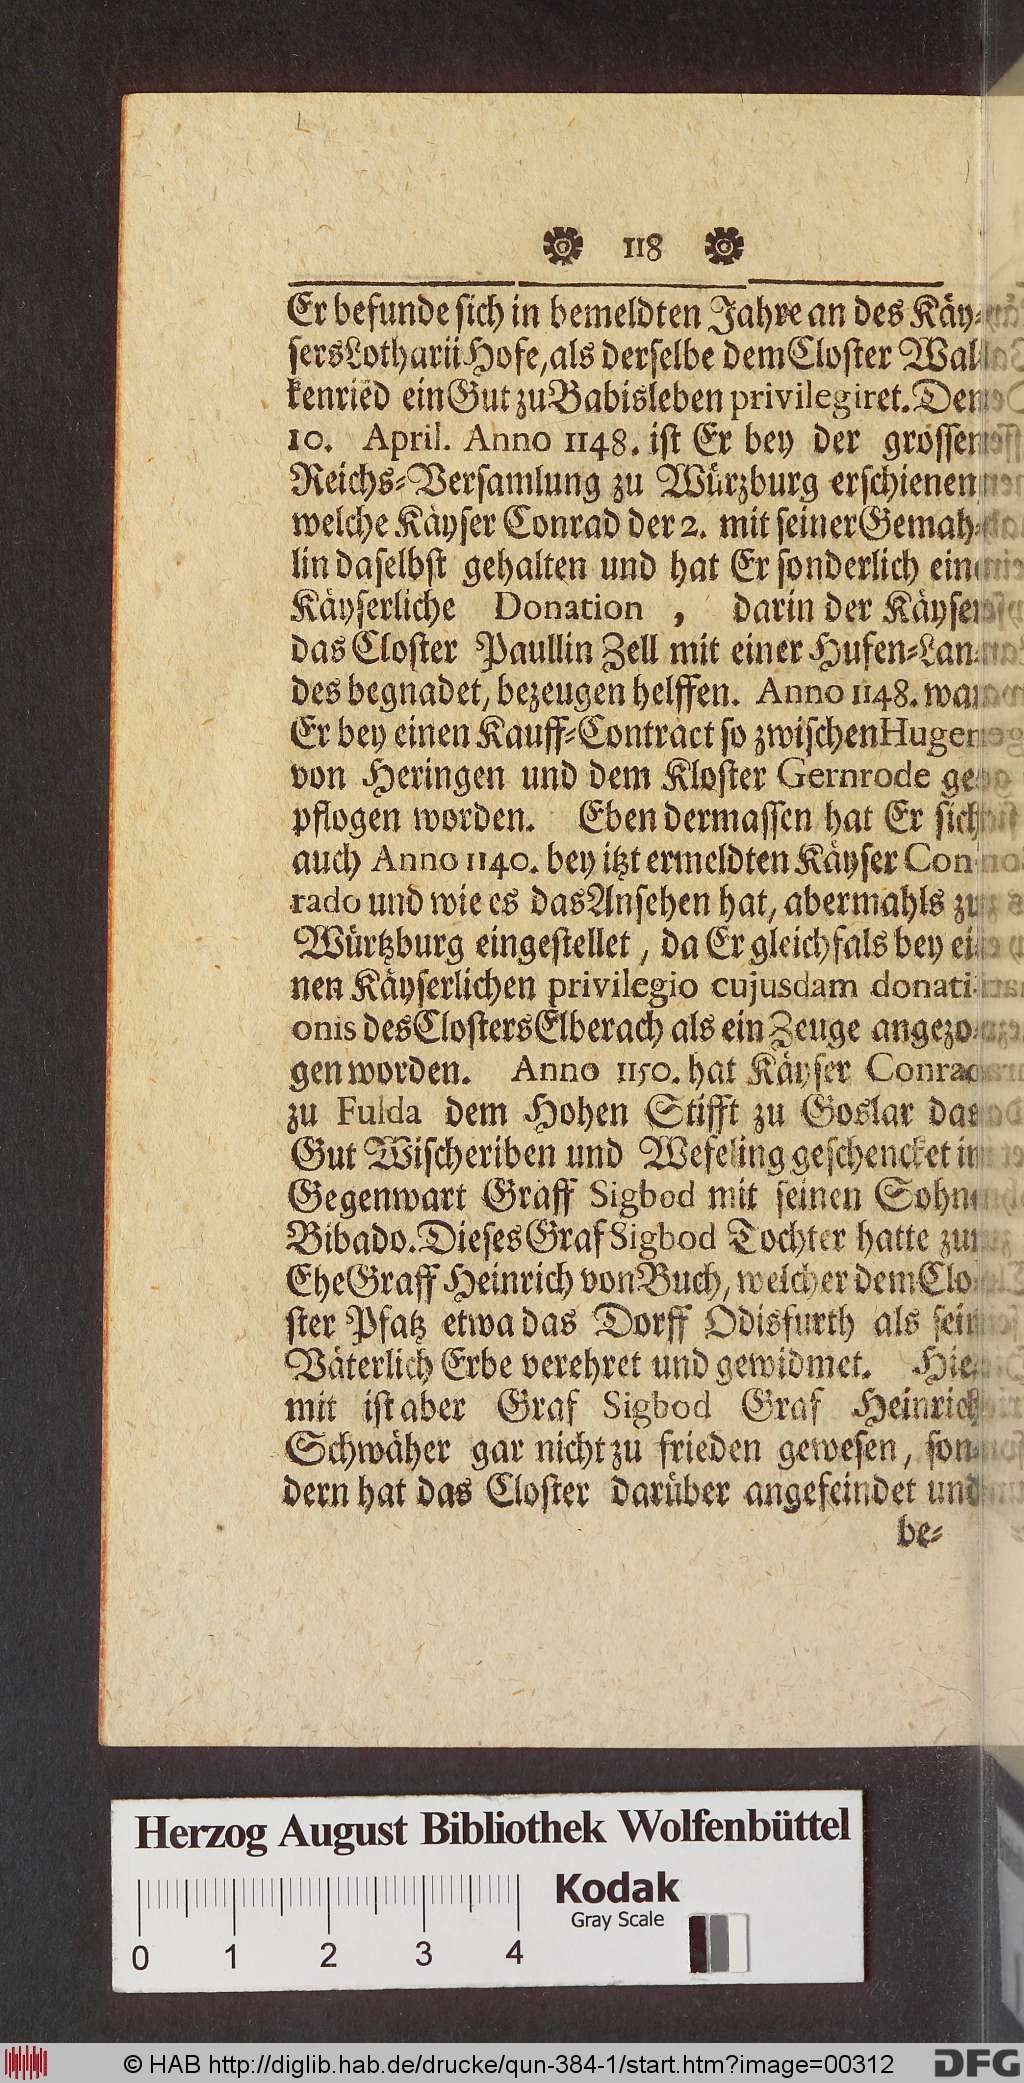 118
Er befunde sich in bemeldten Jahre an des Käy-
sers Lotharii Hofe, als derselbe dem Closter Wal-
kenried ein Gut zu Babisleben privilegiret. Den
10. April. Anno 1148. ist Er bey der grossen
Reichs-Versamlung zu Würzburg erschienen
welche Käyser Conrad der 2. mit seiner Gemah-
lin daselbst gehalten und hat Er sonderlich ein
Käyserliche Donation, darin der Käyser
das Closter Paullin Zell mit einer Hufen-Lan-
des begnadet, bezeugen helffen. Anno 1148. war
Er bey einen Kauff-Contract so zwischen Hugen
von Heringen und dem Kloster Gernrode ge-
pflogen worden. Eben dermassen hat Er sich
auch Anno 1140. bey itzt ermeldten Käyser Con-
rado und wie es das Ansehen hat, abermahls zu
Würtzburg eingestellet, da Er gleichfals bey ei-
nen Käyserlichen privilegio cujusdam donati-
onis des Closters Elberach als ein Zeuge angezo-
gen worden. Anno 1150. hat Käyser Conrad
zu Fulda dem Hohen Stifft zu Goslar das
Gut Wischeriben und Wefeling geschencket in
Gegenwart Graff Sigbod mit seinen Sohn
Bibado. Dieses Graf Sigbod Tochter hatte zur
Ehe Graff Heinrich von Buch, welcher dem Clo-
ster Pfatz etwa das Dorff Odisfurth als sein
Väterlich Erbe verehret und gewidmet. Hie-
mit ist aber Graf Sigbod Graf Heinrich
Schwäher gar nicht zu frieden gewesen, son-
dern hat das Closter darüber angefeindet und
be-
Herzog August Bibliothek Wolfenbüttel
Kodak
Gray Scale
0 1 2 3 4
© HAB http://diglib.hab.de/drucke/qun-384-1/start.htm?image=00312
DFG